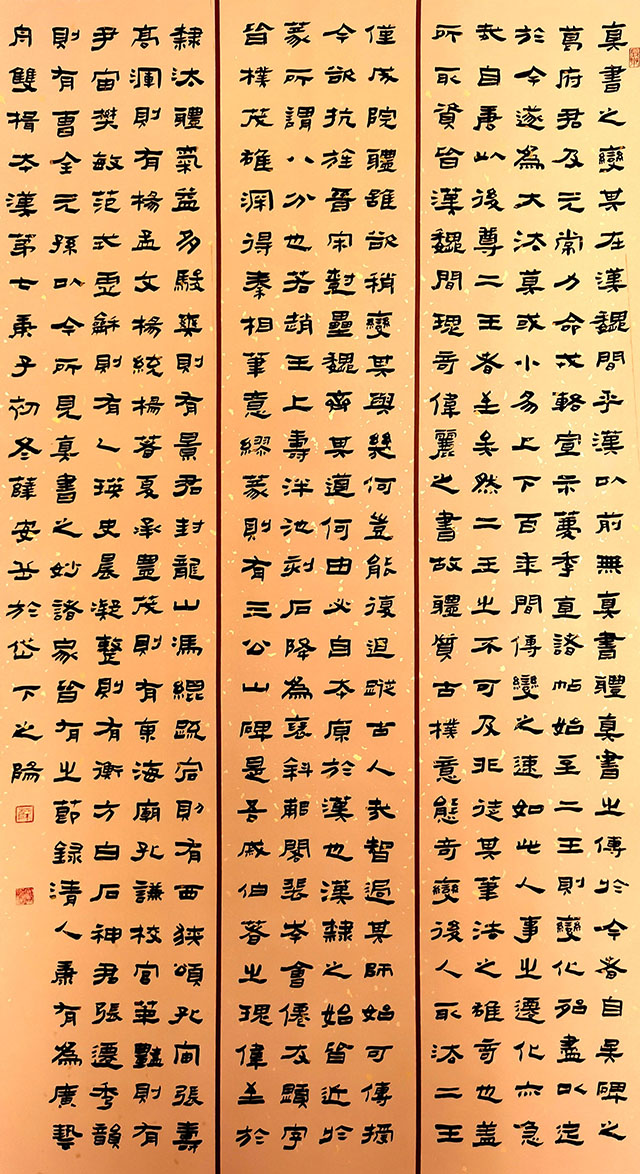 真書之變其在漢魏間乎漢以前無真書體真書之傳於今者自吳碑之
葛府君及元常力命戎輅宣示薦季直諸帖始至二王則變化殆盡以迄
於今遂為大法莫或小易上下百年間傳變之速如此人事之遷化亦急
哉自唐以後尊二王者至矣然二王之不可及非徒其筆法之雄奇也蓋
所取資皆漢魏間瑰奇偉麗之書故體質古樸意態奇變後人取法二王
僅成院體雖欲稍變其與幾何豈能復追蹤古人哉智過其師始可傳授
今欲抗旌晉宋對壘魏齊其道何由必自本原於漢也漢隸之始皆近於
篆所謂八分也若趙王上壽泮池刻石降為褒斜郙閣裴岑會僊友顯字
皆樸茂雄深得秦相筆意繆篆則有三公山碑是吾戚伯著之瑰偉至於
隸法體氣益多駿爽則有景君封龍山馮緄疏宕則有西狹頌孔宙張壽
高渾則有楊孟文楊統楊著夏承豐茂則有東海廟孔謙校官華豔則有
尹宙樊敏范式虛龢則有乙瑛史晨凝整則有衡方白石神君張遷秀韻
則有曹全元孫以今所見真書之妙諸家皆有之節錄清人康有為廣藝
舟雙楫本漢第七庚子初冬薛安岳於岱下之陽